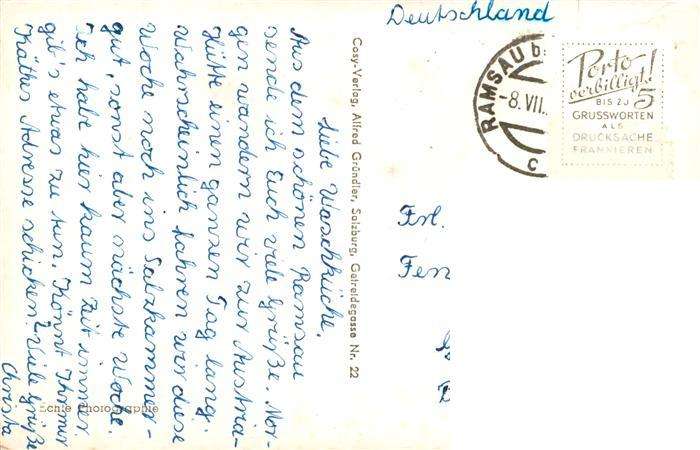 Deutschland
RAMSAU b.
-8.VII.
c
Porto
verbilligt!
BIS ZU 5
GRUSSWORTEN
ALS
DRUCKSACHE
FRANKIEREN
Frl.
Fen
Cosy-Verlag, Alfred Gründler, Salzburg, Getreidegasse Nr. 22
Liebe Waschküche,
Aus dem schönen Ramsau
sende ich Euch viele Grüße. Mor-
gen wandern wir zur Austria-
Hütte einen ganzen Tag lang.
Wahrscheinlich fahren wir diese
Woche noch ins Salzkammer-
gut, sonst aber nächste Woche.
Ich habe hier kaum Zeit immer
gib's etwas zu tun. Könnt Ihr mir
Käthes Adresse schicken? Viele Grüße
Christa
Echte Photographie